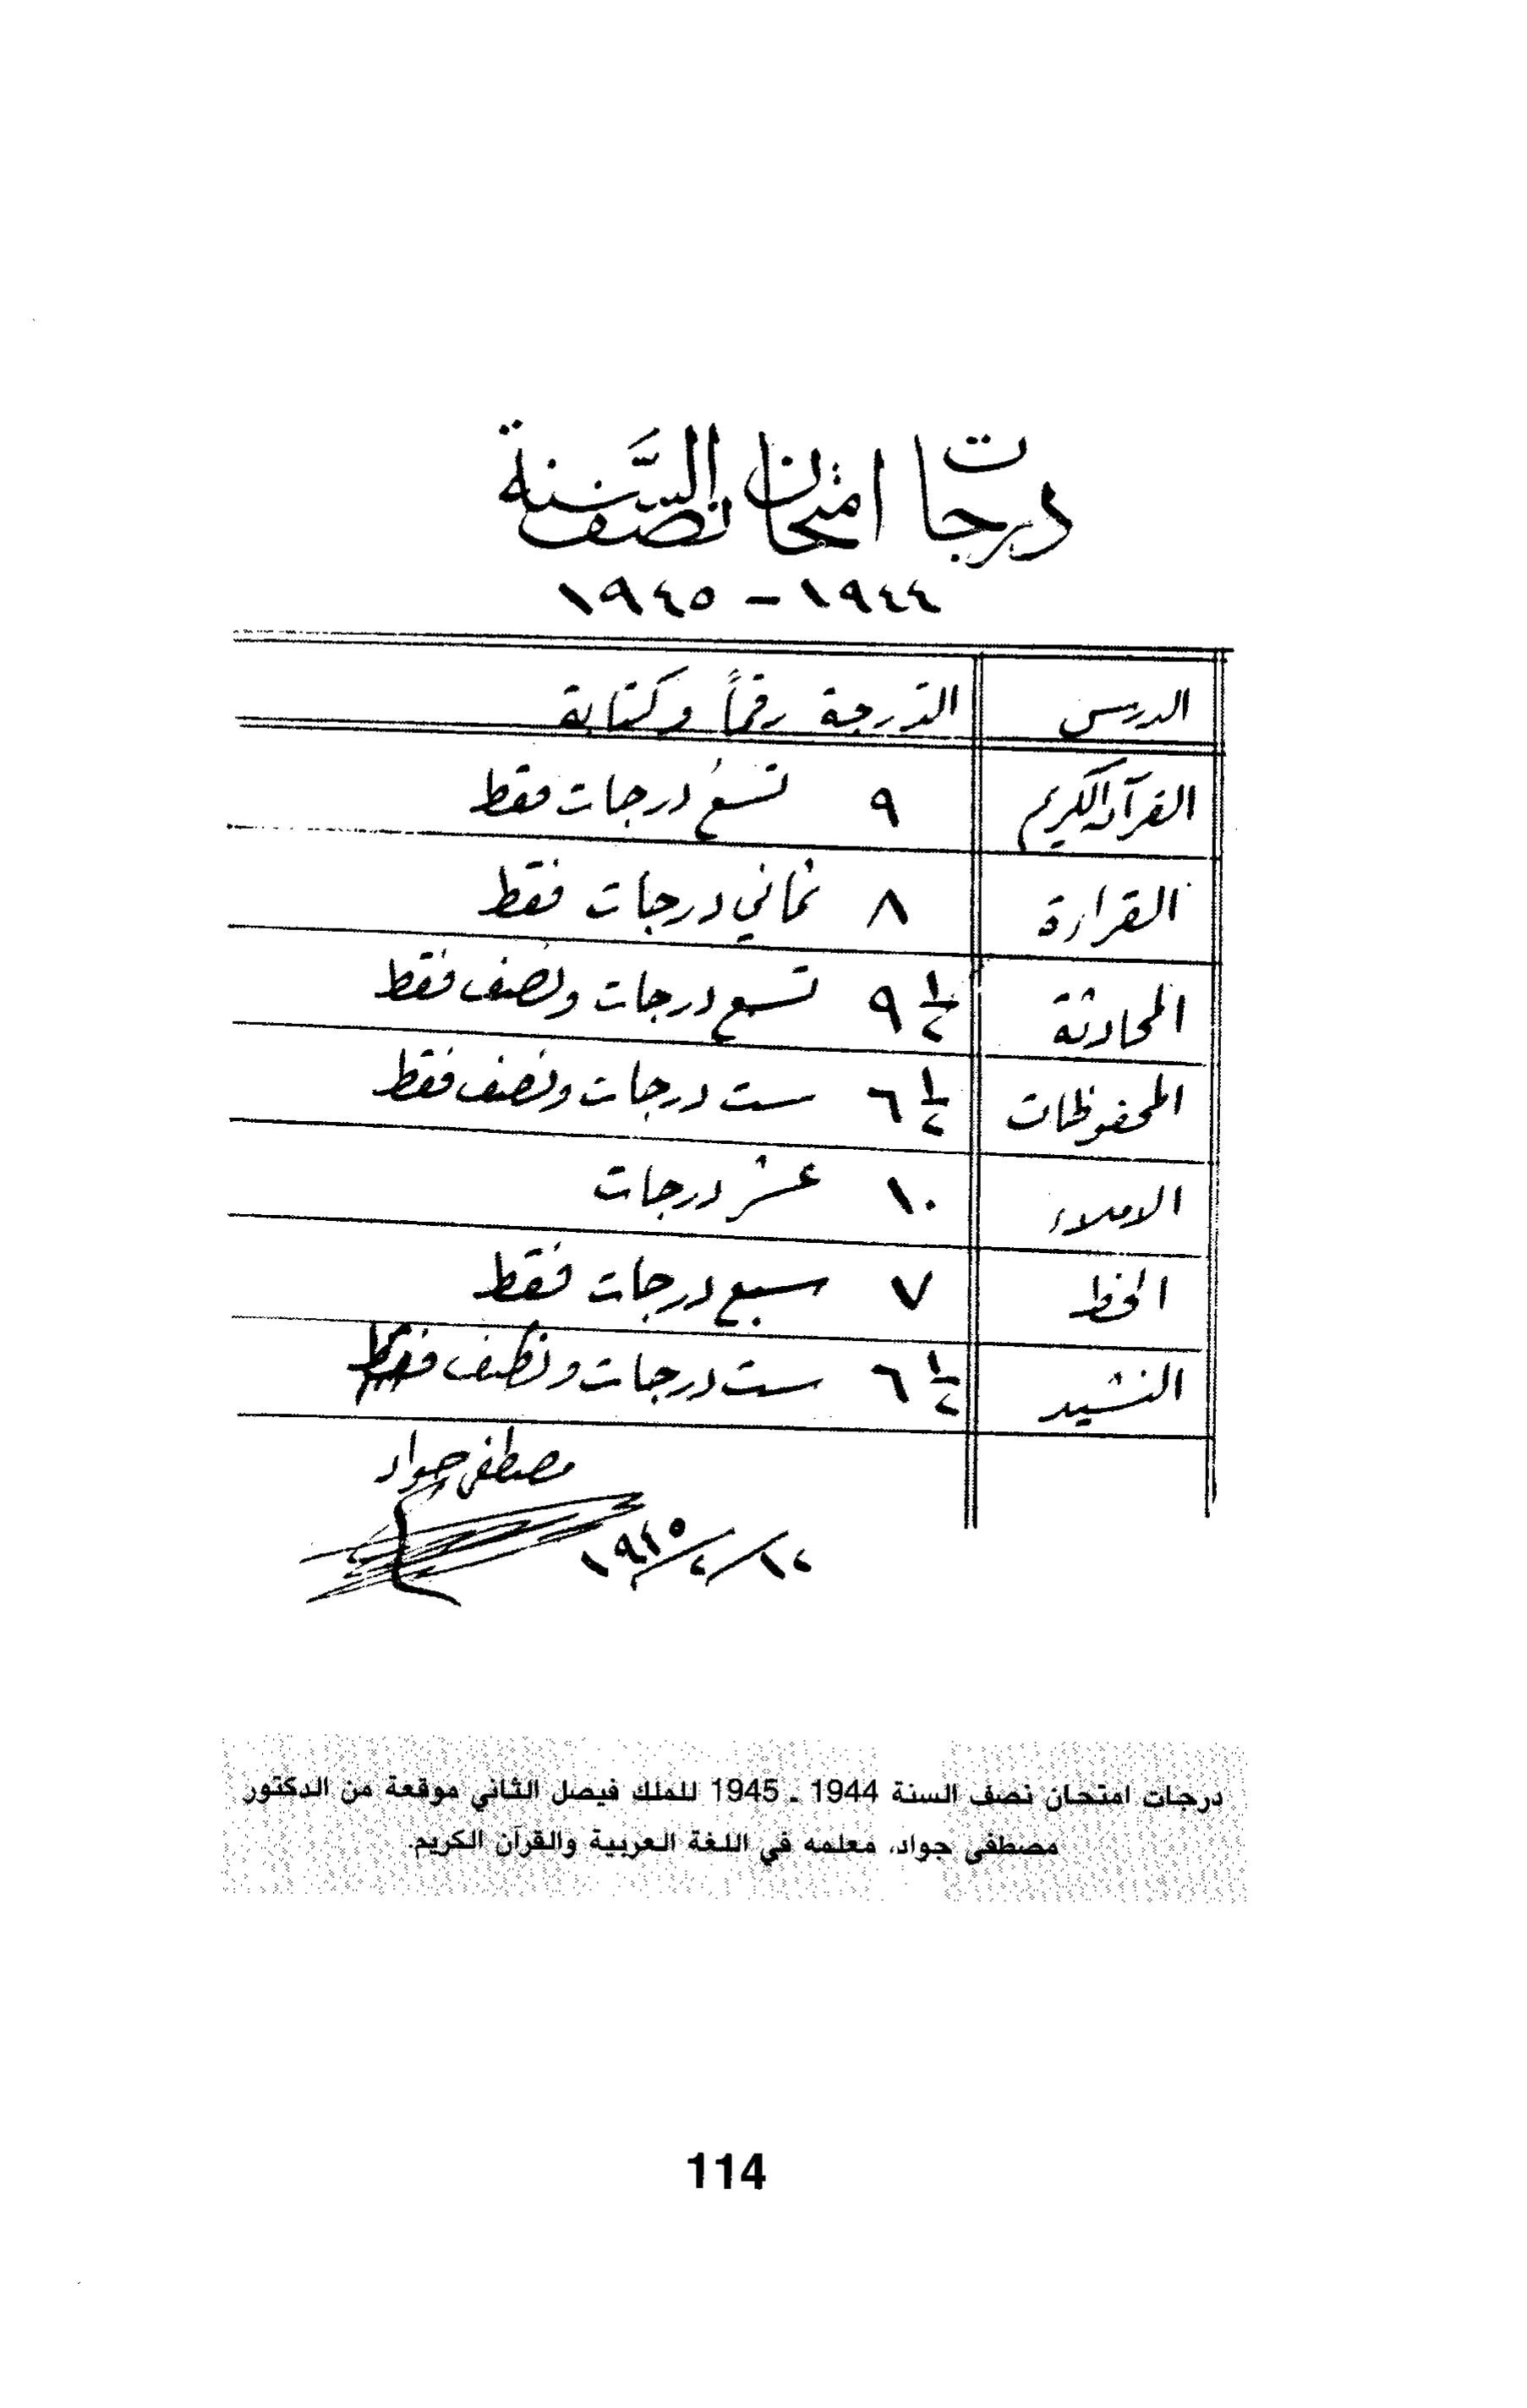 درجات امتحان نصف السَّنة
١٩٤٤ - ١٩٤٥
الدرس الدرجة رقماً وكتابة
القرآن الكريم ٩ تسع درجات فقط
القراءة ٨ ثماني درجات فقط
المحادثة ٩ ١/٢ تسع درجات ونصف فقط
المحفوظات ٦ ١/٢ ست درجات ونصف فقط
الاملاء ١٠ عشر درجات
الخط ٧ سبع درجات فقط
النشيد ٦ ١/٢ ست درجات ونصف فقط
مصطفى جواد
١٩٤٥/٢/١٢
درجات امتحان نصف السنة 1944 ـ 1945 للملك فيصل الثاني موقعة من الدكتور
مصطفى جواد، معلمه في اللغة العربية والقرآن الكريم.
114